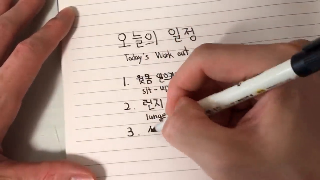 오늘의 일정
Today's Work out
1. 윗몸 일으
sit-u
2. 런지
lunge
3.